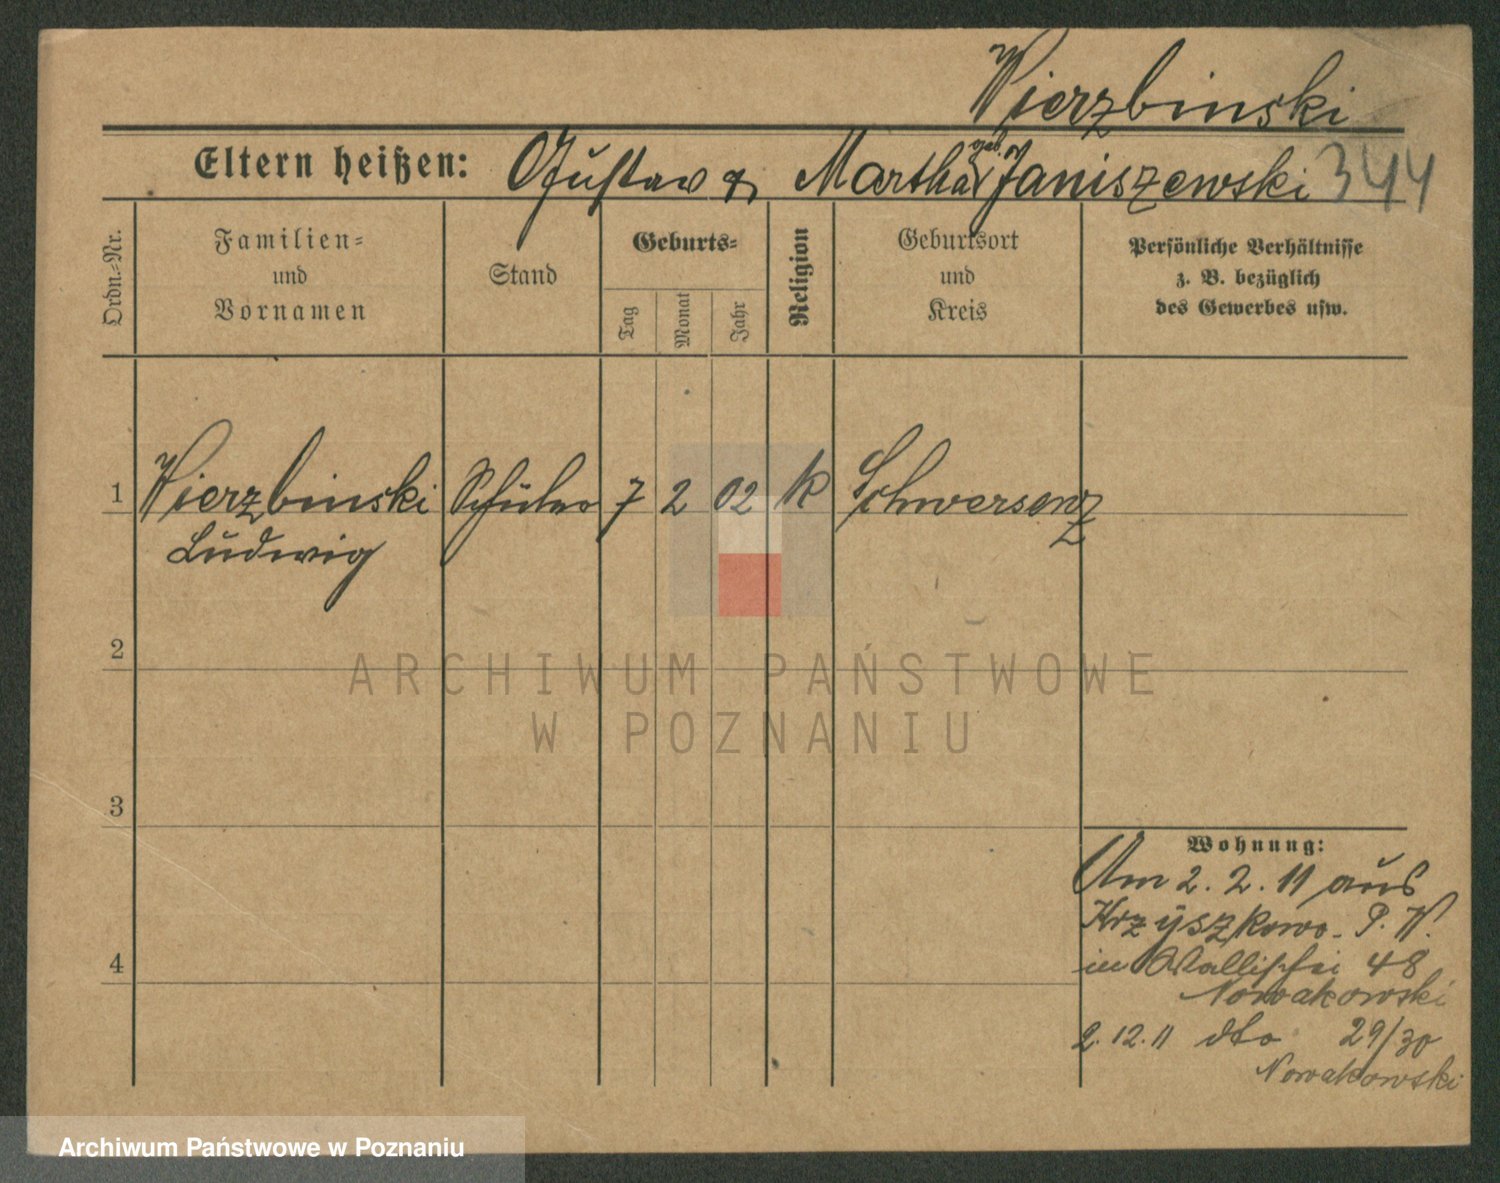 Wierzbinski
Eltern heißen: Gustav & Martha geb. Janiszewski 344
Ordn.-Nr.
Familien- und Vornamen
Stand
Geburts-
Tag
Monat
Jahr
Religion
Geburtsort und Kreis
Persönliche Verhältnisse
z. B. bezüglich
des Gewerbes usw.
1 Wierzbinski Schüler 7 2 02 k Schwersenz
Ludwig
2
ARCHIWUM PAŃSTWOWE
W POZNANIU
3
Wohnung:
Am 2. 2. 11 aus
Krzyszkowo. P. W.
4
in Wallischei 48
Nowakowski
2. 12. 11 dto 29/30
Nowakowski
Archiwum Państwowe w Poznaniu